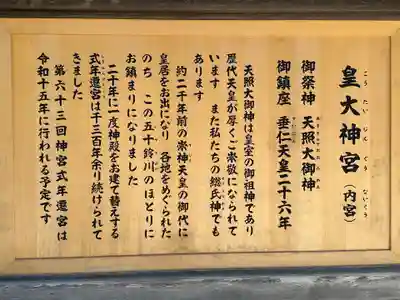 皇大神宮（内宮）
こうたいじんぐう　ないくう
御祭神　天照大御神
あまてらすおおみかみ
御鎮座　垂仁天皇二十六年
天照大御神は皇室の御祖神であり
歴代天皇が厚くご崇敬になられて
います　また私たちの総氏神でも
あります
約二千年前の崇神天皇の御代に
皇居をお出になり　各地をめぐられた
のち　この五十鈴川のほとりに
お鎮まりになりました
二十年に一度神殿をお建て替えする
式年遷宮は千三百年余り続けられて
きました
第六十三回神宮式年遷宮は
令和十五年に行われる予定です